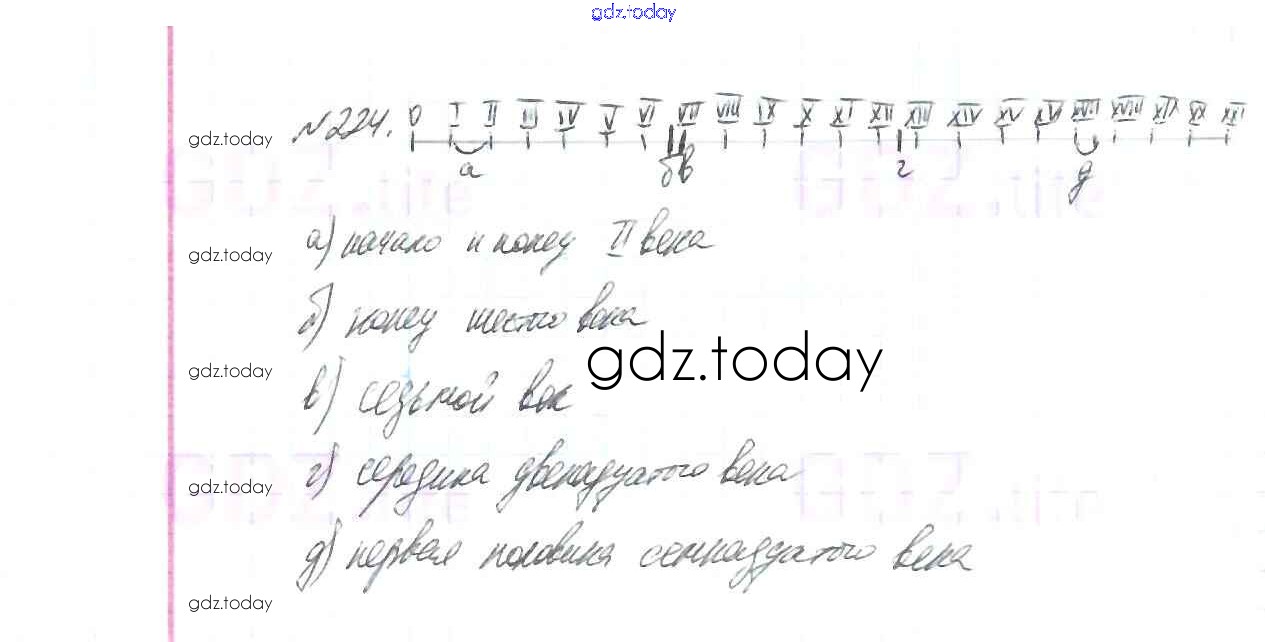 gdz.today
№224. 0 I II III IV V VI VII VIII IX X XI XII XIII XIV XV XVI XVII XVIII XIX XX XXI
gdz.today
а б в г д
а) начало и конец II века
gdz.today
б) конец шестого века
gdz.today
gdz.today
в) седьмой век
г) середина двенадцатого века
gdz.today
д) первая половина семнадцатого века
gdz.today